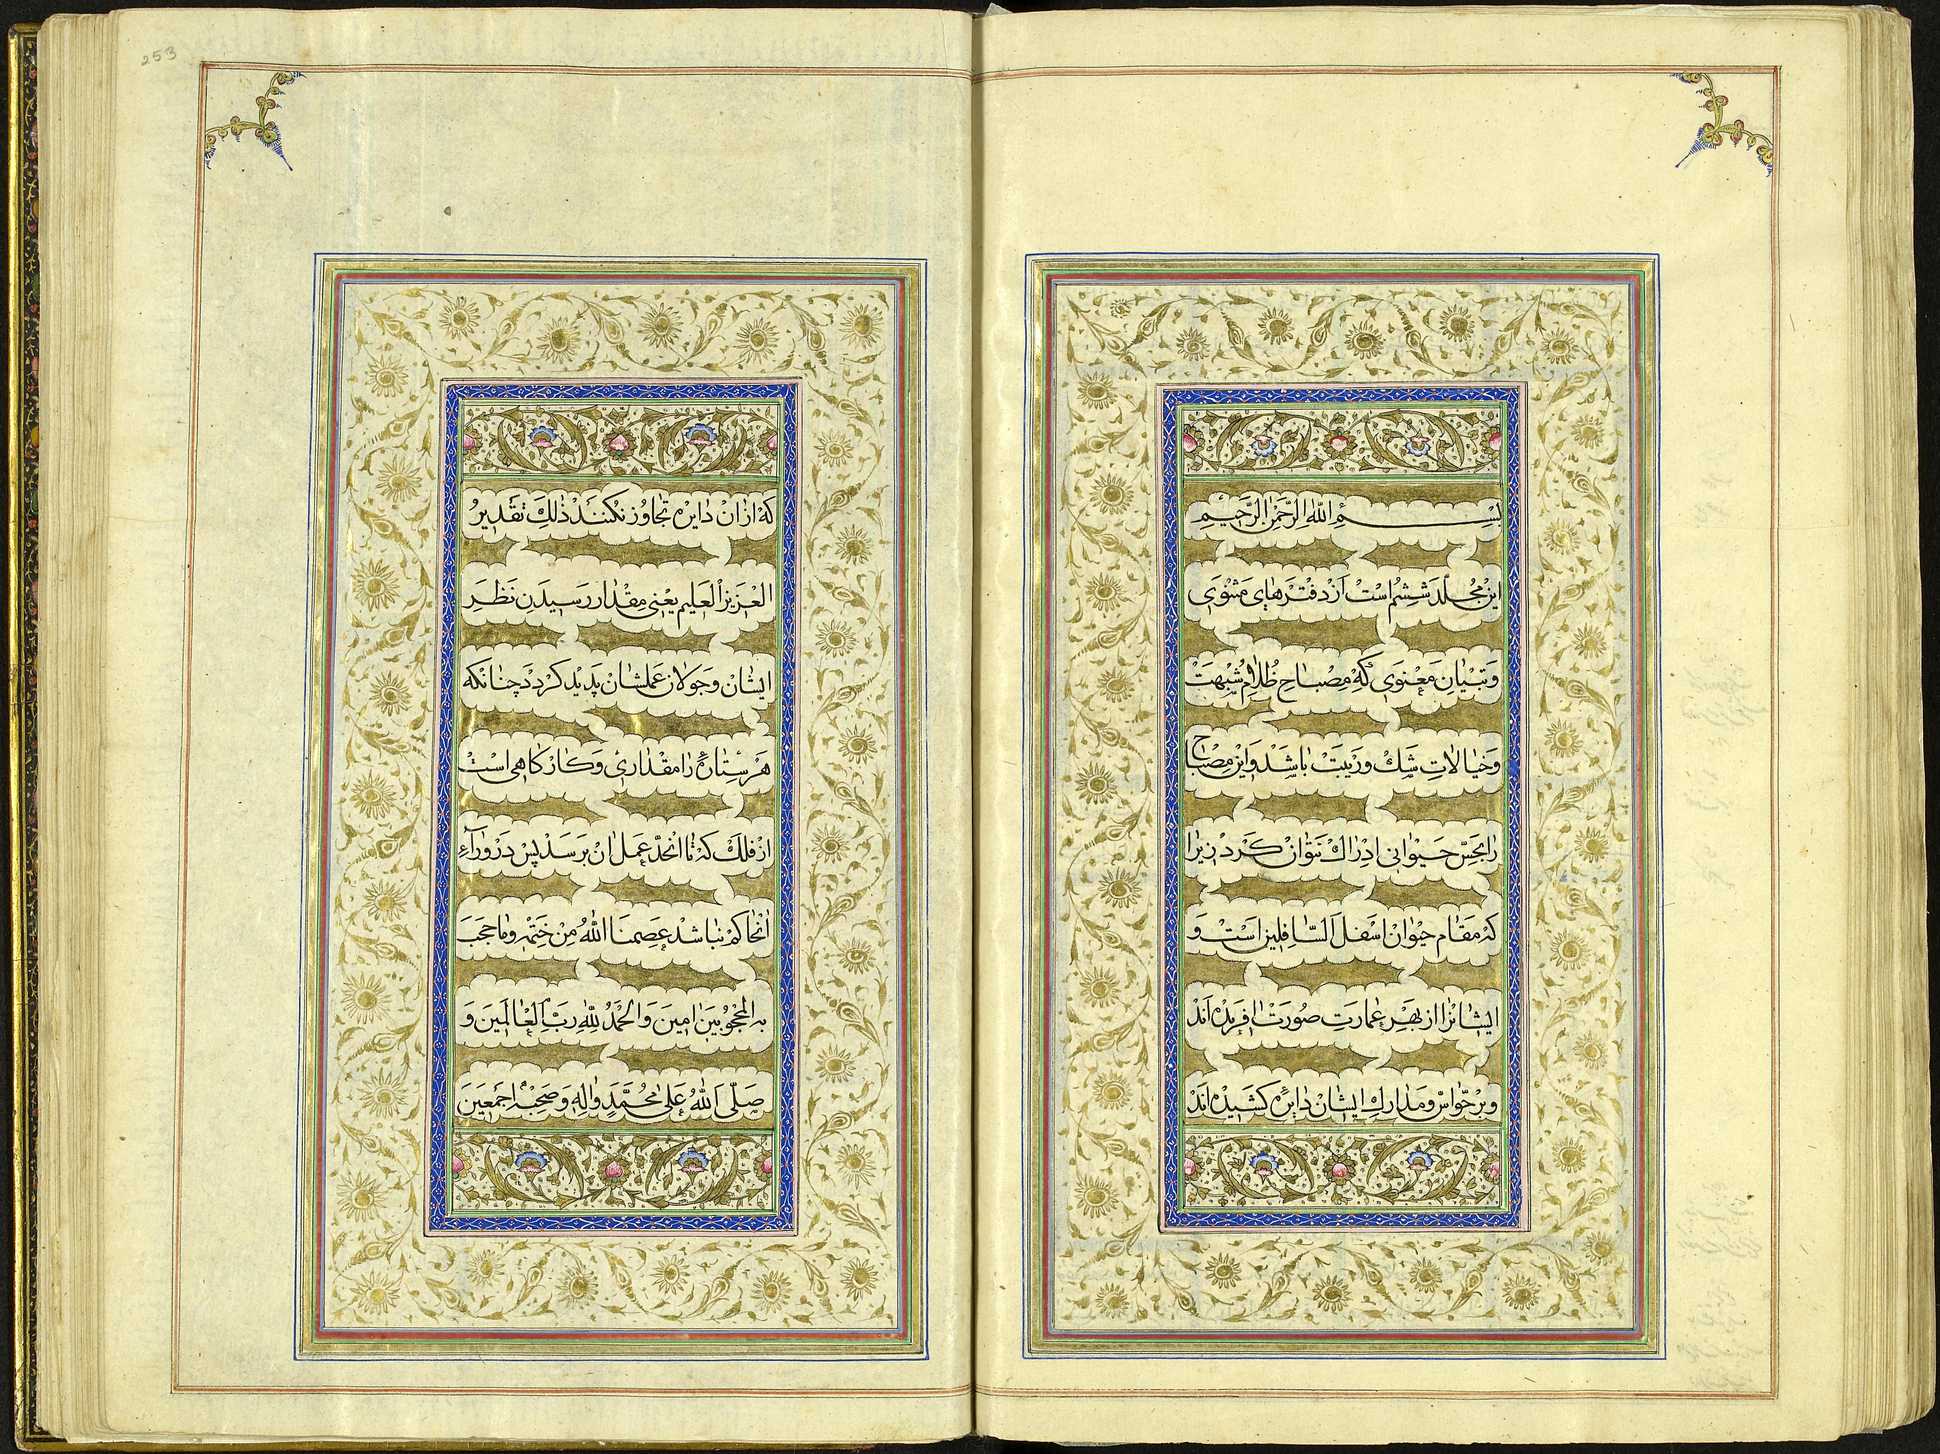 بِسْمِ اللّٰهِ الرَّحْمٰنِ الرَّحِيْمِ
این مجلّد ششم است از دفترهای مثنوی
و تبیان معنوی که مصباح ظلام شبهت
و خیالات شک و ریبت باشد و این مصباح
را بحس حیوانی ادراک نتوان کرد زیرا
که مقام حیوان اسفل السافلین است و
ایشانرا از بهر عمارت صورت افریده اند
و بر حواس و مدارک ایشان دایره کشیده اند
که ازان دایره تجاوز نکنند ذلك تقدیر
العزیز العلیم یعنی مقدار رسیدن نظر
ایشان و جولان عملشان پدید کرد چنانکه
هر ستاره را مقداری و کارکاهی است
از فلک که تا انحد عمل ان برسد پس در وراء
انحاکم نباشد عصمنا الله من ختمه وما حجب
به المحجوبین امین والحمد لله رب العالمین و
صلی الله علی محمد واله وصحبه اجمعین
253